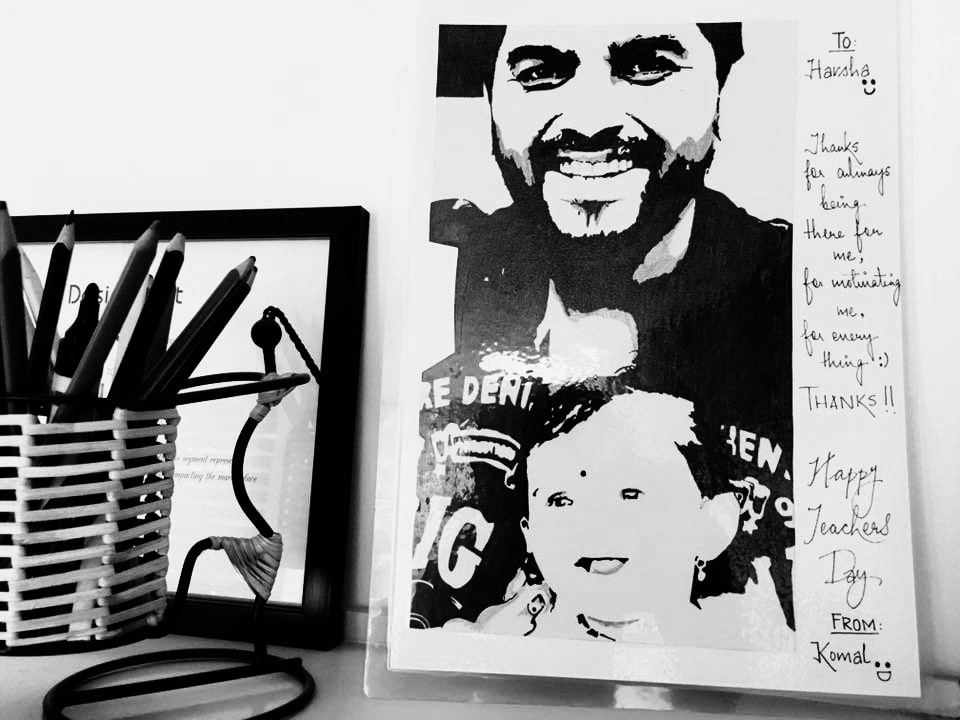 TO:
Harsha
Thanks
for always
being
there for
me,
for motivating
me,
for every
thing :)
THANKS!!
Happy
Teachers
Day,
FROM:
Komal
RE DENI
HEN
IG
segment
impacting the